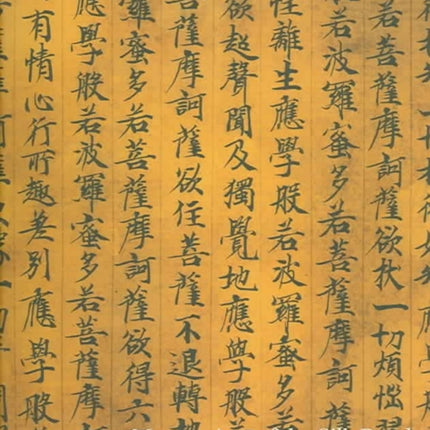 若菩薩摩訶薩欲拔一切煩惱習
若波羅蜜多若菩薩摩訶薩
性離生應學般若波羅蜜多若
欲超聲聞及獨覺地應學般若
菩薩摩訶薩欲住菩薩不退轉地
羅蜜多若菩薩摩訶薩欲得六
應學般若波羅蜜多若菩薩摩
有情心行所趣差別應學般